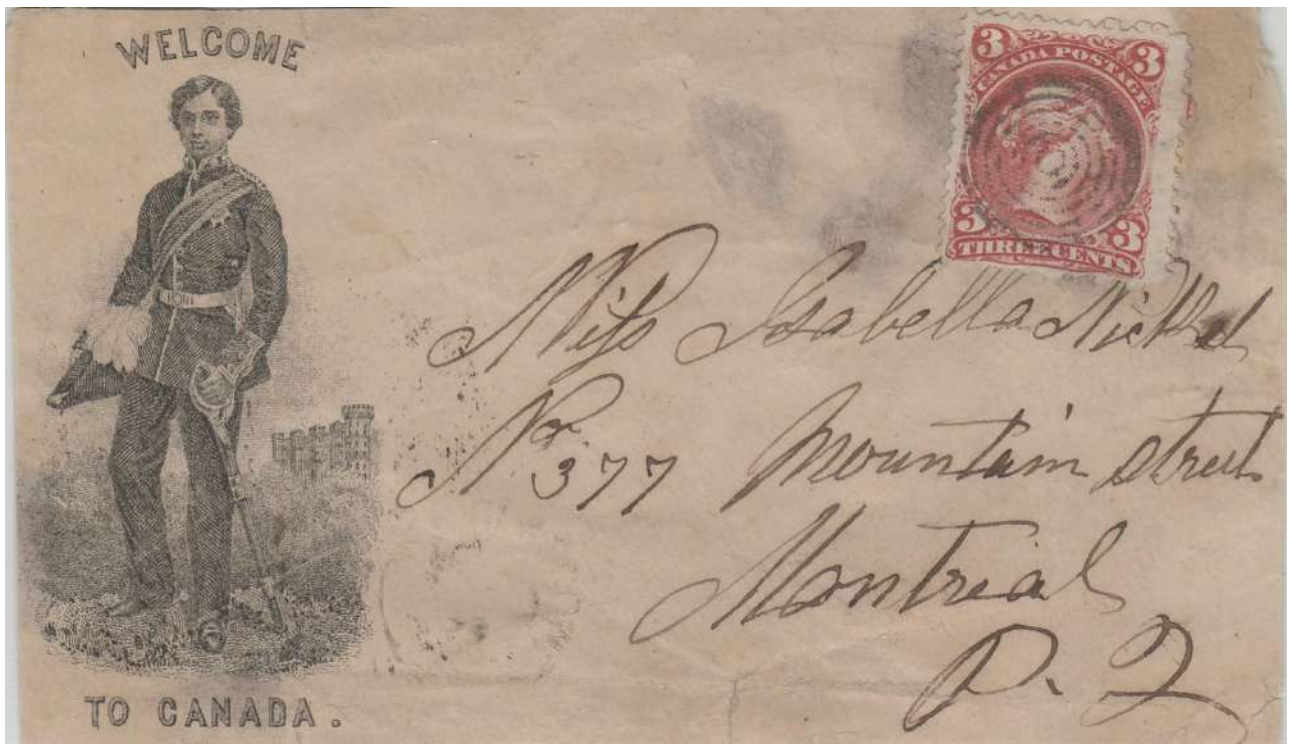 WELCOME
TO CANADA.
3 3
CANADA POSTAGE
3 3
THREE CENTS
Miss Isabella
No 377 Mountain street
Montreal
P. Q